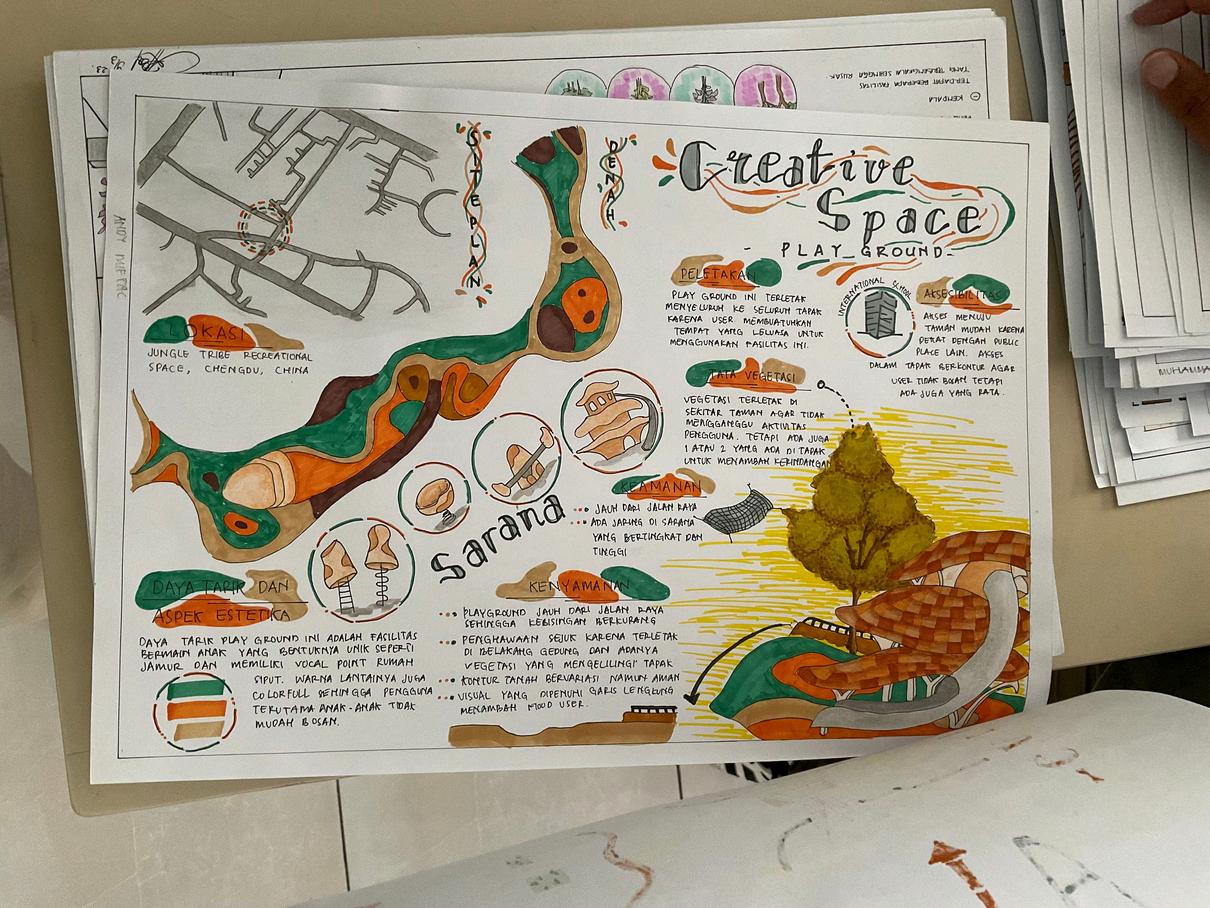 TERDAPAT BEBERAPA FASILITAS
YANG TERBENGKALAI SEHINGGA RUSAK.
KENDALA
SITEPLAN
DENAH
Creative
Space
- PLAY GROUND -
LOKASI
JUNGLE TRIBE RECREATIONAL
SPACE, CHENGDU, CHINA
PELETAKAN
PLAY GROUND INI TERLETAK
MENYELURUH KE SELURUH TAPAK
KARENA USER MEMBUATUHKAN
TEMPAT YANG LELUASA UNTUK
MENGGUNAKAN FASILITAS INI.
INTERNATIONAL SCHOOL
AKSESIBILITAS
AKSES MENUJU
TAMAN MUDAH KARENA
DEKAT DENGAN PUBLIC
PLACE LAIN. AKSES
DALAM TAPAK BERKONTUR AGAR
USER TIDAK BOSAN TETAPI
ADA JUGA YANG RATA.
TATA VEGETASI
VEGETASI TERLETAK DI
SEKITAR TAMAN AGAR TIDAK
MENGGANGGU AKTIVITAS
PENGGUNA. TETAPI ADA JUGA
1 ATAU 2 YANG ADA DI TAPAK
UNTUK MENAMBAH KERINDANGAN
KEAMANAN
JAUH DARI JALAN RAYA
ADA JARING DI SARANA
YANG BERTINGKAT DAN
TINGGI
Sarana
DAYA TARIK DAN
ASPEK ESTETIKA
DAYA TARIK PLAY GROUND INI ADALAH FASILITAS
BERMAIN ANAK YANG BENTUKNYA UNIK SEPERTI
JAMUR DAN MEMILIKI VOCAL POINT RUMAH
SIPUT. WARNA LANTAINYA JUGA
COLORFULL SEHINGGA PENGGUNA
TERUTAMA ANAK-ANAK TIDAK
MUDAH BOSAN.
KENYAMANAN
PLAYGROUND JAUH DARI JALAN RAYA
SEHINGGA KEBISINGAN BERKURANG
PENGHAWAAN SEJUK KARENA TERLETAK
DI BELAKANG GEDUNG DAN ADANYA
VEGETASI YANG MENGELILINGI TAPAK
KONTUR TANAH BERVARIASI NAMUN AMAN
VISUAL YANG DIPENUHI GARIS LENGKUNG
MENAMBAH MOOD USER.